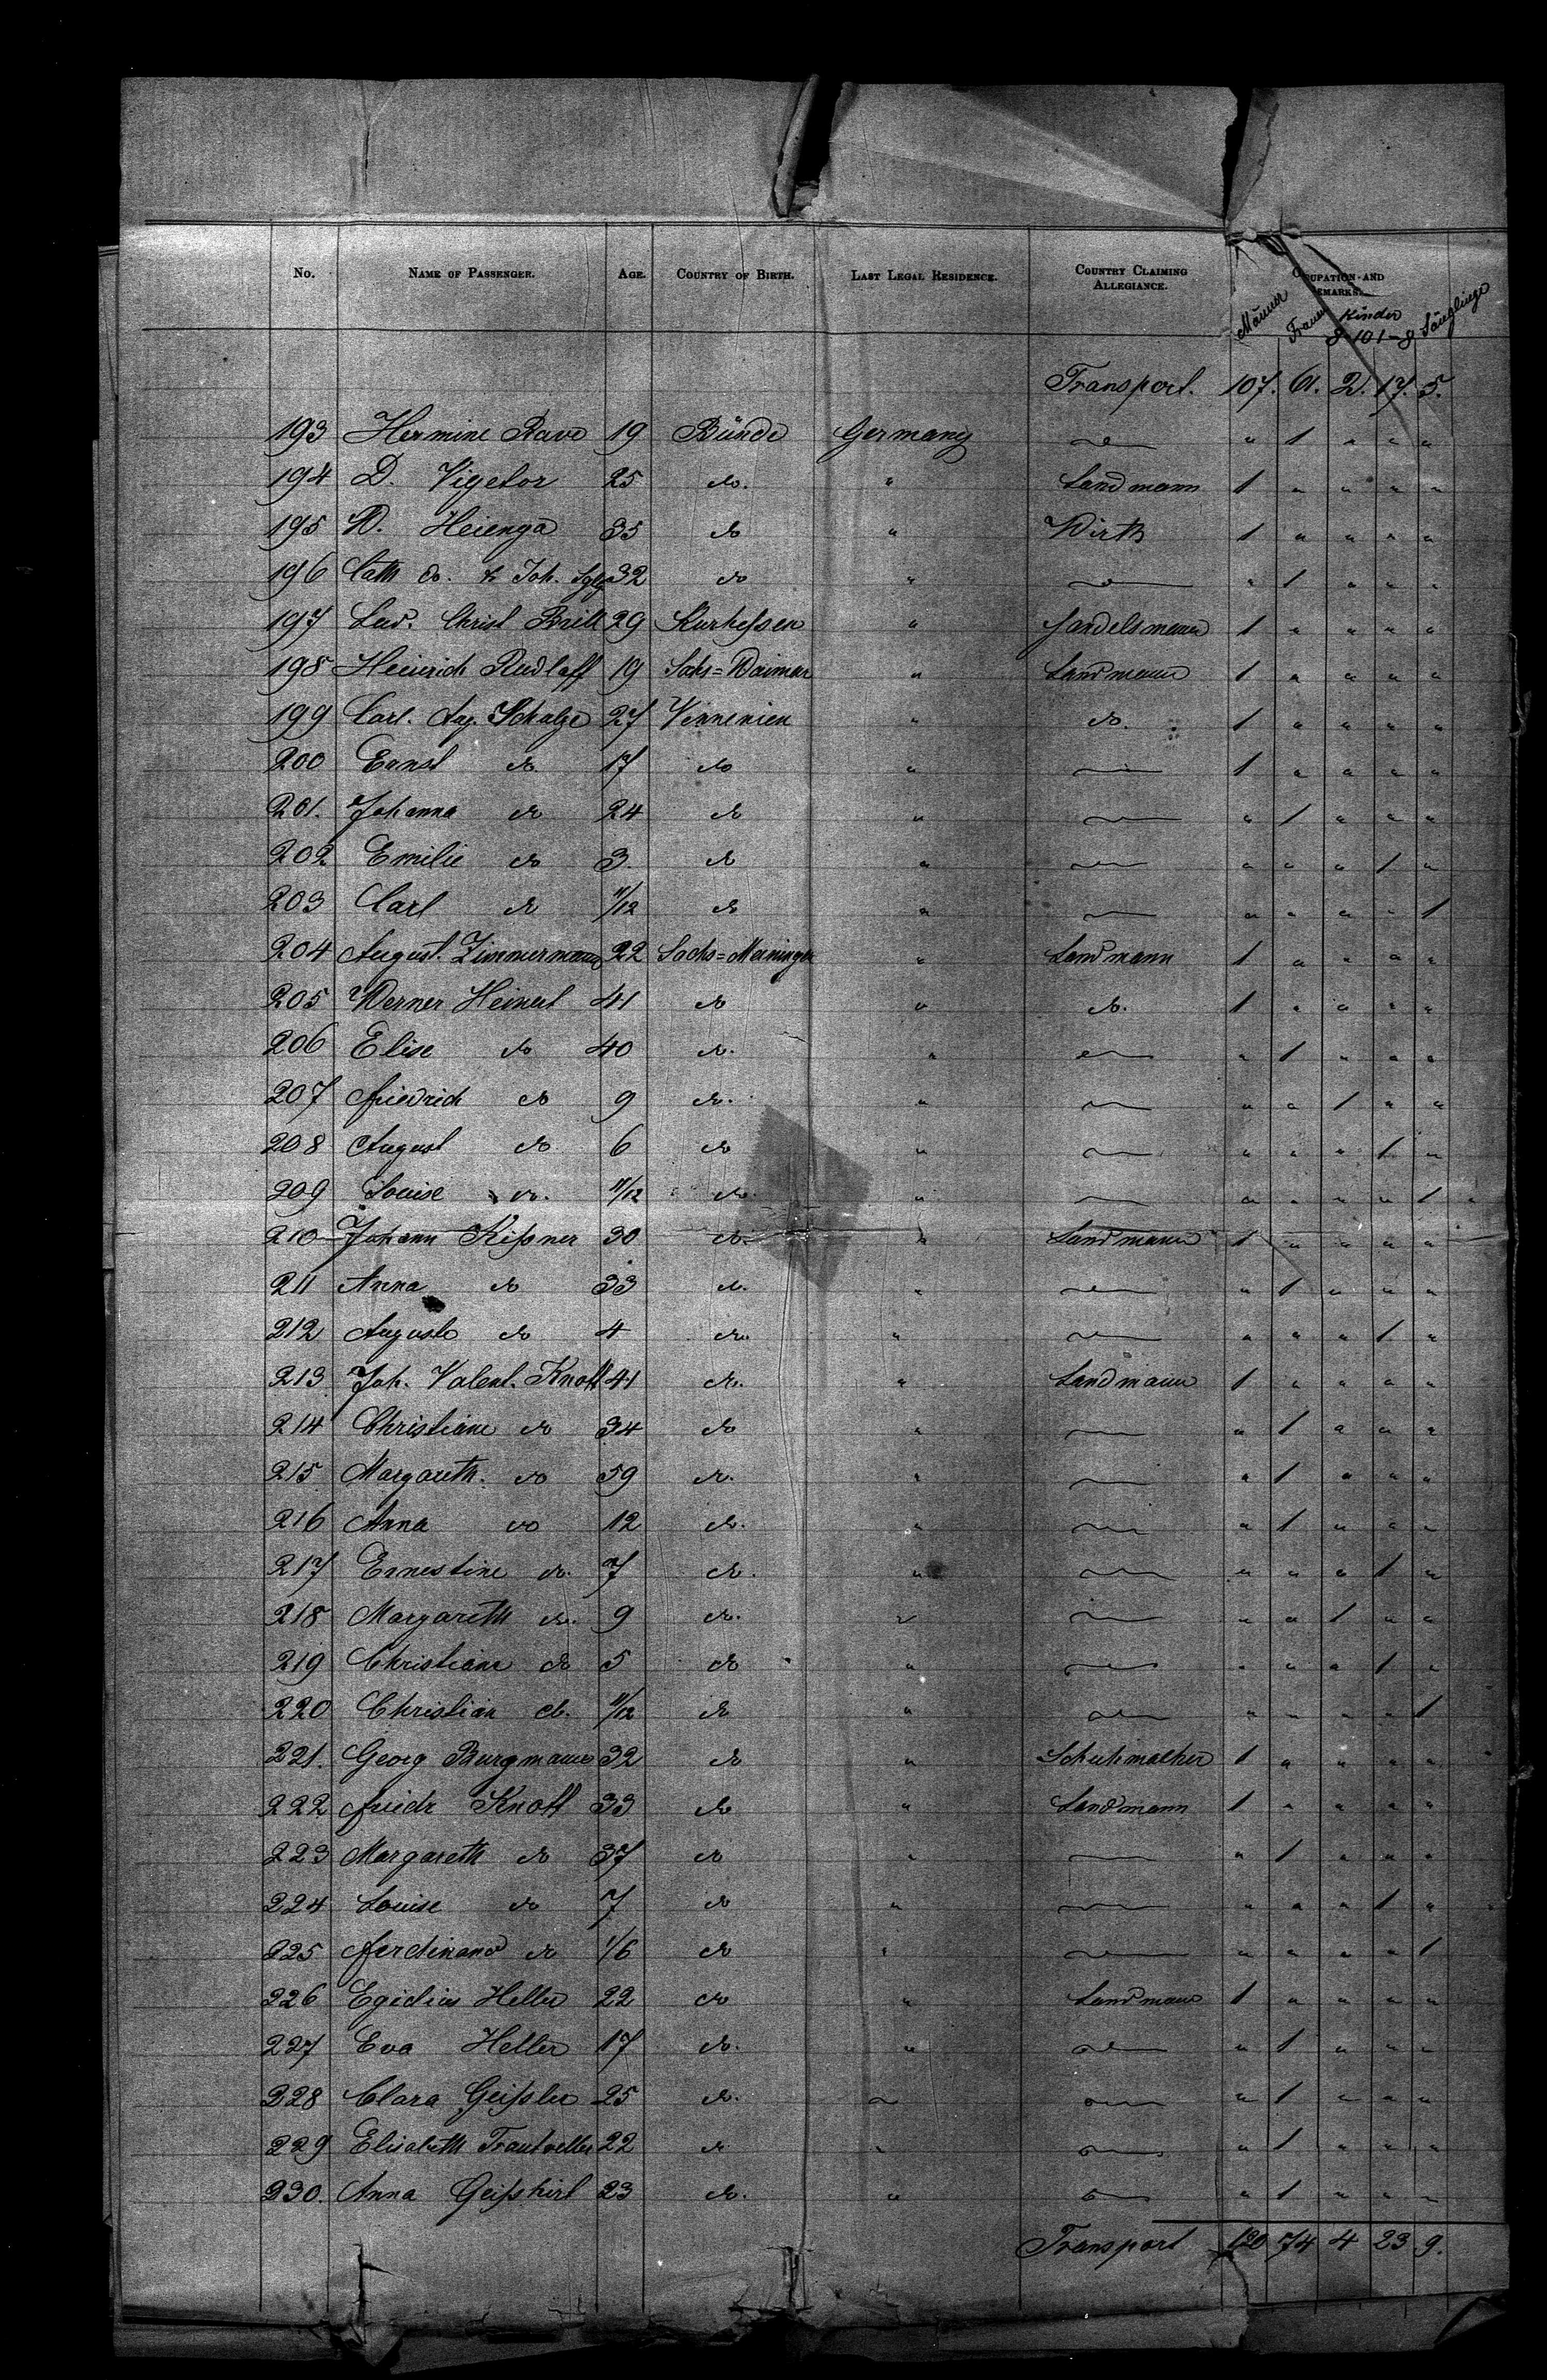 No. NAME OF PASSENGER. AGE. COUNTRY OF BIRTH. LAST LEGAL RESIDENCE. COUNTRY CLAIMING ALLEGIANCE. OCCUPATION AND REMARKS.
Männer Frauen Kinder 8-10 1-8 Säuglinge
Transport. 107. 61. 2. 17. 5.
193 Hermine Rave 19 Bünde Germany — " 1 " " "
194 D. Vigelor 25 do. " Landmann 1 " " " "
195 W. Heienga 35 do " Wirth 1 " " " "
196 Cath do. & Joh. 32 do " — " 1 " " "
197 Lud. Christ Brill 29 Kurheßen " Handelsmann 1 " " " "
198 Heinrich Rudloff 19 Sachs=Waimar " Landmann 1 " " " "
199 Carl. Aug. Schulze 27 " do. 1 " " " "
200 Ernst do 17 do " — 1 " " " "
201. Johanna do 24 do " — " 1 " " "
202 Emilie do 3. do " — " " " 1 "
203 Carl do 11/12 do " — " " " " 1
204 August. Zimmermann 22 Sachs=Meiningen " Landmann 1 " " " "
205 Werner Heinert 41 do " do. 1 " " " "
206 Elise do 40 do. " — " 1 " " "
207 Friedrich do 9 do. " — " " 1 " "
208 August do 6 do " — " " " 1 "
209 Louise do. 11/12 do. " — " " " " 1
210 Johann Kißner 30 do. " Landmann 1 " " " "
211 Anna do 33 do. " — " 1 " " "
212 Auguste do 4 do. " — " " " 1 "
213 Joh. Valent. Knott 41 do. " Landmann 1 " " " "
214 Christiane do 34 do " — " 1 " " "
215 Margareth. do 59 do. " — " 1 " " "
216 Anna do 12 do. " — " 1 " " "
217 Ernestine do. 7 do. " — " " " 1 "
218 Margareth do. 9 do. " — " " 1 " "
219 Christiane do 5 do " — " " " 1 "
220 Christian do. 11/12 do " — " " " " 1
221. Georg Burgmann 32 do " Schuhmacher 1 " " " "
222 Friedr Knott 33 do " Landmann 1 " " " "
223 Margareth do 37 do " — " 1 " " "
224 Louise do 7 do " — " " " 1 "
225 Ferdinand do 1/6 do " — " " " " 1
226 Egidius Heller 22 do " Landmann 1 " " " "
227 Eva Heller 17 do. " — " 1 " " "
228 Clara Geißler 25 do. " — " 1 " " "
229 Elisabeth Trautvetter 22 do " — " 1 " " "
230. Anna Geißhirt 23 do. " — " 1 " " "
Transport 120 74 4 23 9.